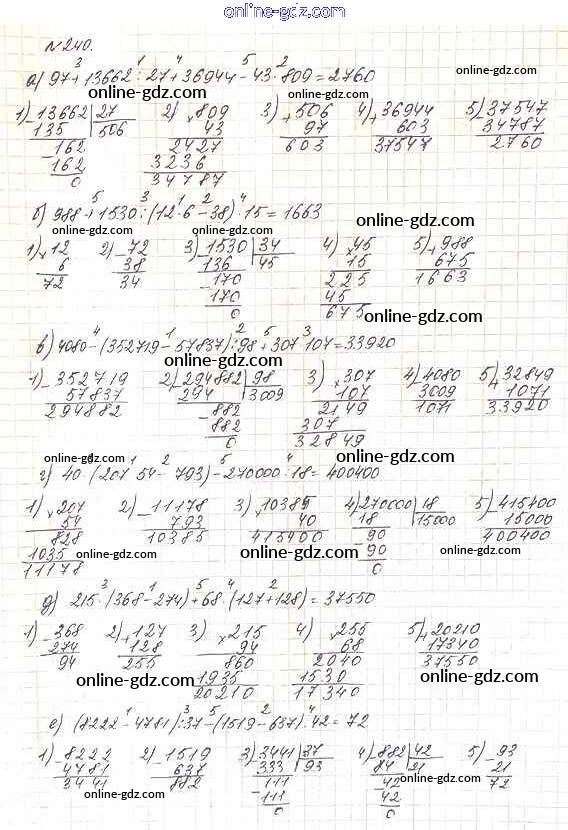 online-gdz.com
№240.
3 1 4 5 2
а) 97 + 13662 : 27 + 36944 - 43 · 809 = 2760
online-gdz.com
1) 13662 | 27 2) × 809 3) + 506 4) + 36944 5) - 37547
- 135 506 43 97 603 34787
- 162 2427 603 37547 2760
162 3236
0 34787
online-gdz.com online-gdz.com online-gdz.com
5 3 1 2 4
б) 988 + 1530 : (12 · 6 - 38) · 15 = 1663
online-gdz.com
online-gdz.com online-gdz.com
1) × 12 2) - 72 3) - 1530 | 34 4) × 45 5) + 988
6 38 136 45 15 675
72 34 - 170 225 1663
170 45
0 675
online-gdz.com
4 1 2 5 3
в) 4080 - (352719 - 57837) : 98 + 307 · 107 = 33920
online-gdz.com online-gdz.com
1) - 352719 2) - 294882 | 98 3) × 307 4) - 4080 5) + 32849
57837 294 3009 107 3009 1071
294882 - 882 2149 1071 33920
882 307
0 32849
online-gdz.com online-gdz.com
3 1 2 5 4
г) 40 · (207 · 54 - 793) - 270000 : 18 = 400400
1) × 207 2) - 11178 3) × 10385 4) 270000 | 18 5) - 415400
54 793 40 18 15000 15000
828 10385 415400 - 90 400400
1035 90
11178 0
online-gdz.com online-gdz.com online-gdz.com
3 1 5 4 2
д) 215 · (368 - 274) + 68 · (127 + 128) = 37550
online-gdz.com
1) - 368 2) + 127 3) × 215 4) × 255 5) + 20210
274 128 94 68 17340
94 255 860 2040 37550
1935 1530
20210 17340
online-gdz.com online-gdz.com
1 3 5 2 4
е) (8222 - 4781) : 37 - (1519 - 637) : 42 = 72
online-gdz.com online-gdz.com
1) - 8222 2) - 1519 3) - 3441 | 37 4) - 882 | 42 5) - 93
4781 637 333 93 84 21 21
3441 882 - 111 - 42 72
111 42
0 0
online-gdz.com online-gdz.com online-gdz.com